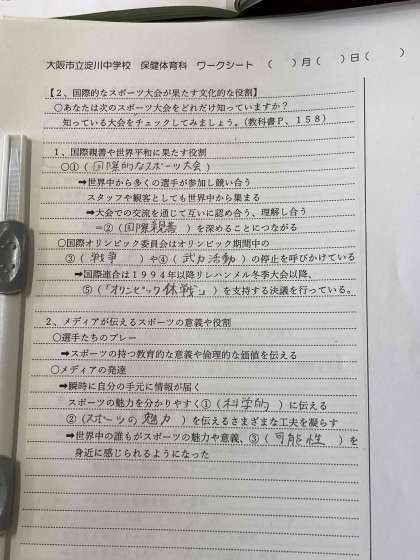 大阪市立淀川中学校　保健体育科　ワークシート　（　　）月（　　）日（　　）
【２、国際的なスポーツ大会が果たす文化的な役割】
○あなたは次のスポーツ大会をどれだけ知っていますか？
知っている大会をチェックしてみましょう。（教科書Ｐ、１５８）
１、国際親善や世界平和に果たす役割
○①（国際的なスポーツ大会）
➡世界中から多くの選手が参加し競い合う
スタッフや観客としても世界中から集まる
➡大会での交流を通じて互いに認め合う、理解し合う
＝②（国際親善）を深めることにつながる
○国際オリンピック委員会はオリンピック期間中の
③（戦争）や④（武力活動）の停止を呼びかけている
➡国際連合は１９９４年以降リレハンメル冬季大会以降、
⑤（「オリンピック休戦」）を支持する決議を行っている。
２、メディアが伝えるスポーツの意義や役割
○選手たちのプレー
➡スポーツの持つ教育的な意義や倫理的な価値を伝える
○メディアの発達
➡瞬時に自分の手元に情報が届く
スポーツの魅力を分かりやすく①（科学的）に伝える
②（スポーツの魅力）を伝えるさまざまな工夫を凝らす
➡世界中の誰もがスポーツの魅力や意義、③（可能性）を
身近に感じられるようになった